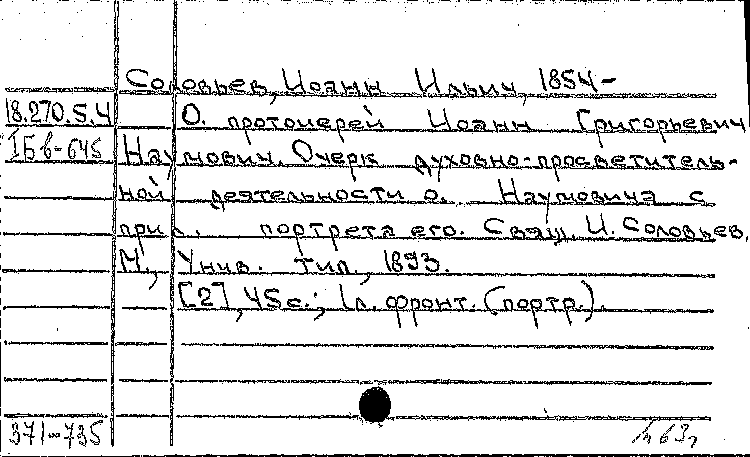 Соловьев, Иоанн Ильич, 1854-
18.270.5.4 О. протоиерей Иоанн Григорьевич
IБв-645 Наумович. Очерк духовно-просветитель-
ной деятельности о. Наумовича с
прил. портрета его. Свящ. И. Соловьев,
М., Унив. тип., 1893.
[2], 45 с.; 1 л. фронт. (портр.).
371-735